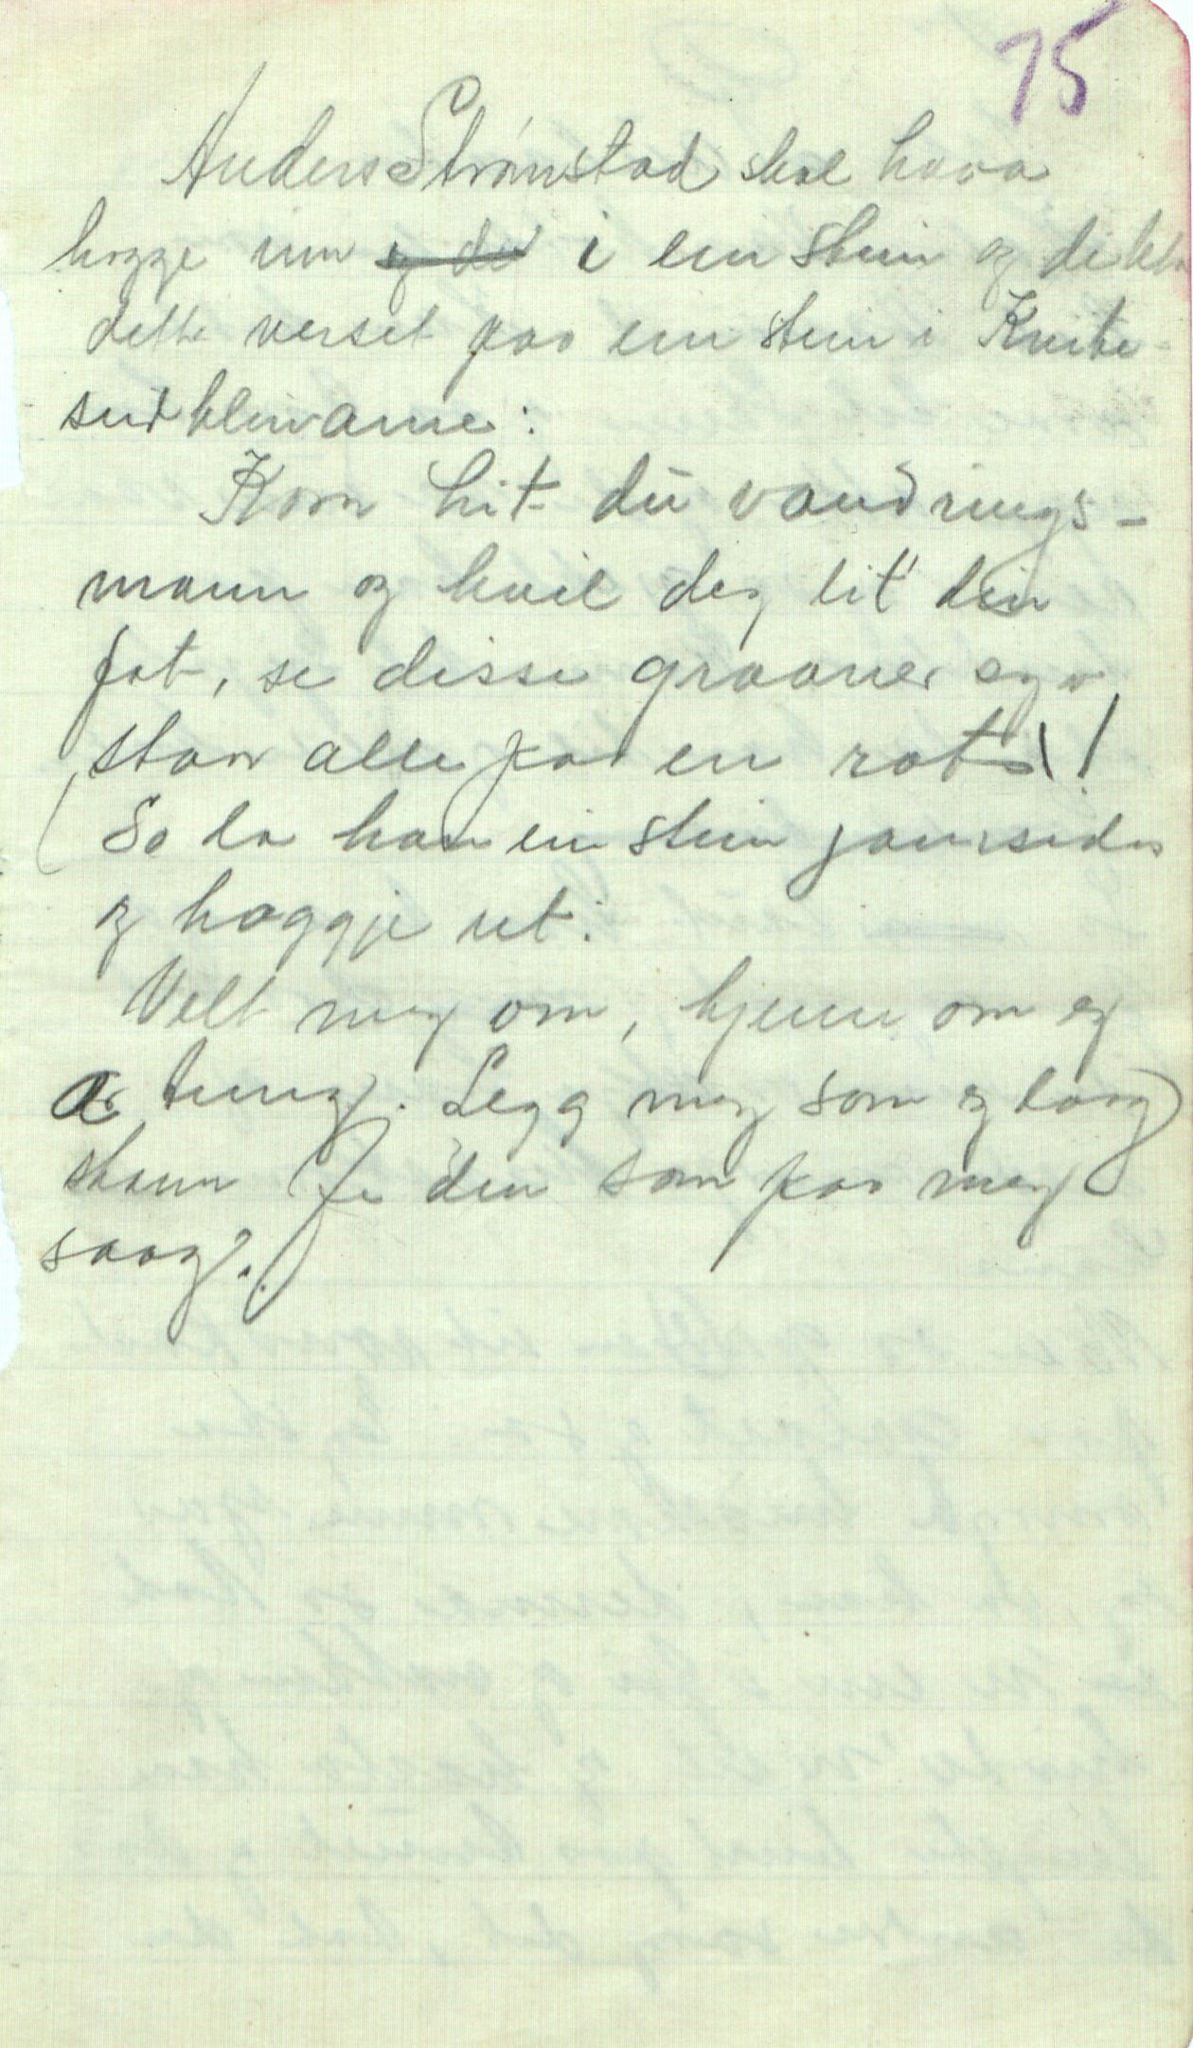 75
Anders Strømstad skal hava
hogge inn og der i ein stein og dikta
dette verset paa ein stein i
Kom hit du vandrings-
mann og hvil deg lit din
fot, se disse graaner syv
staar alle paa en rot!
So la han ein stein jamsides
og hoggje ut:
Velt meg om, kjenn om eg
æ tung. Legg meg som eg laag
skann fe den som paa meg
saag.